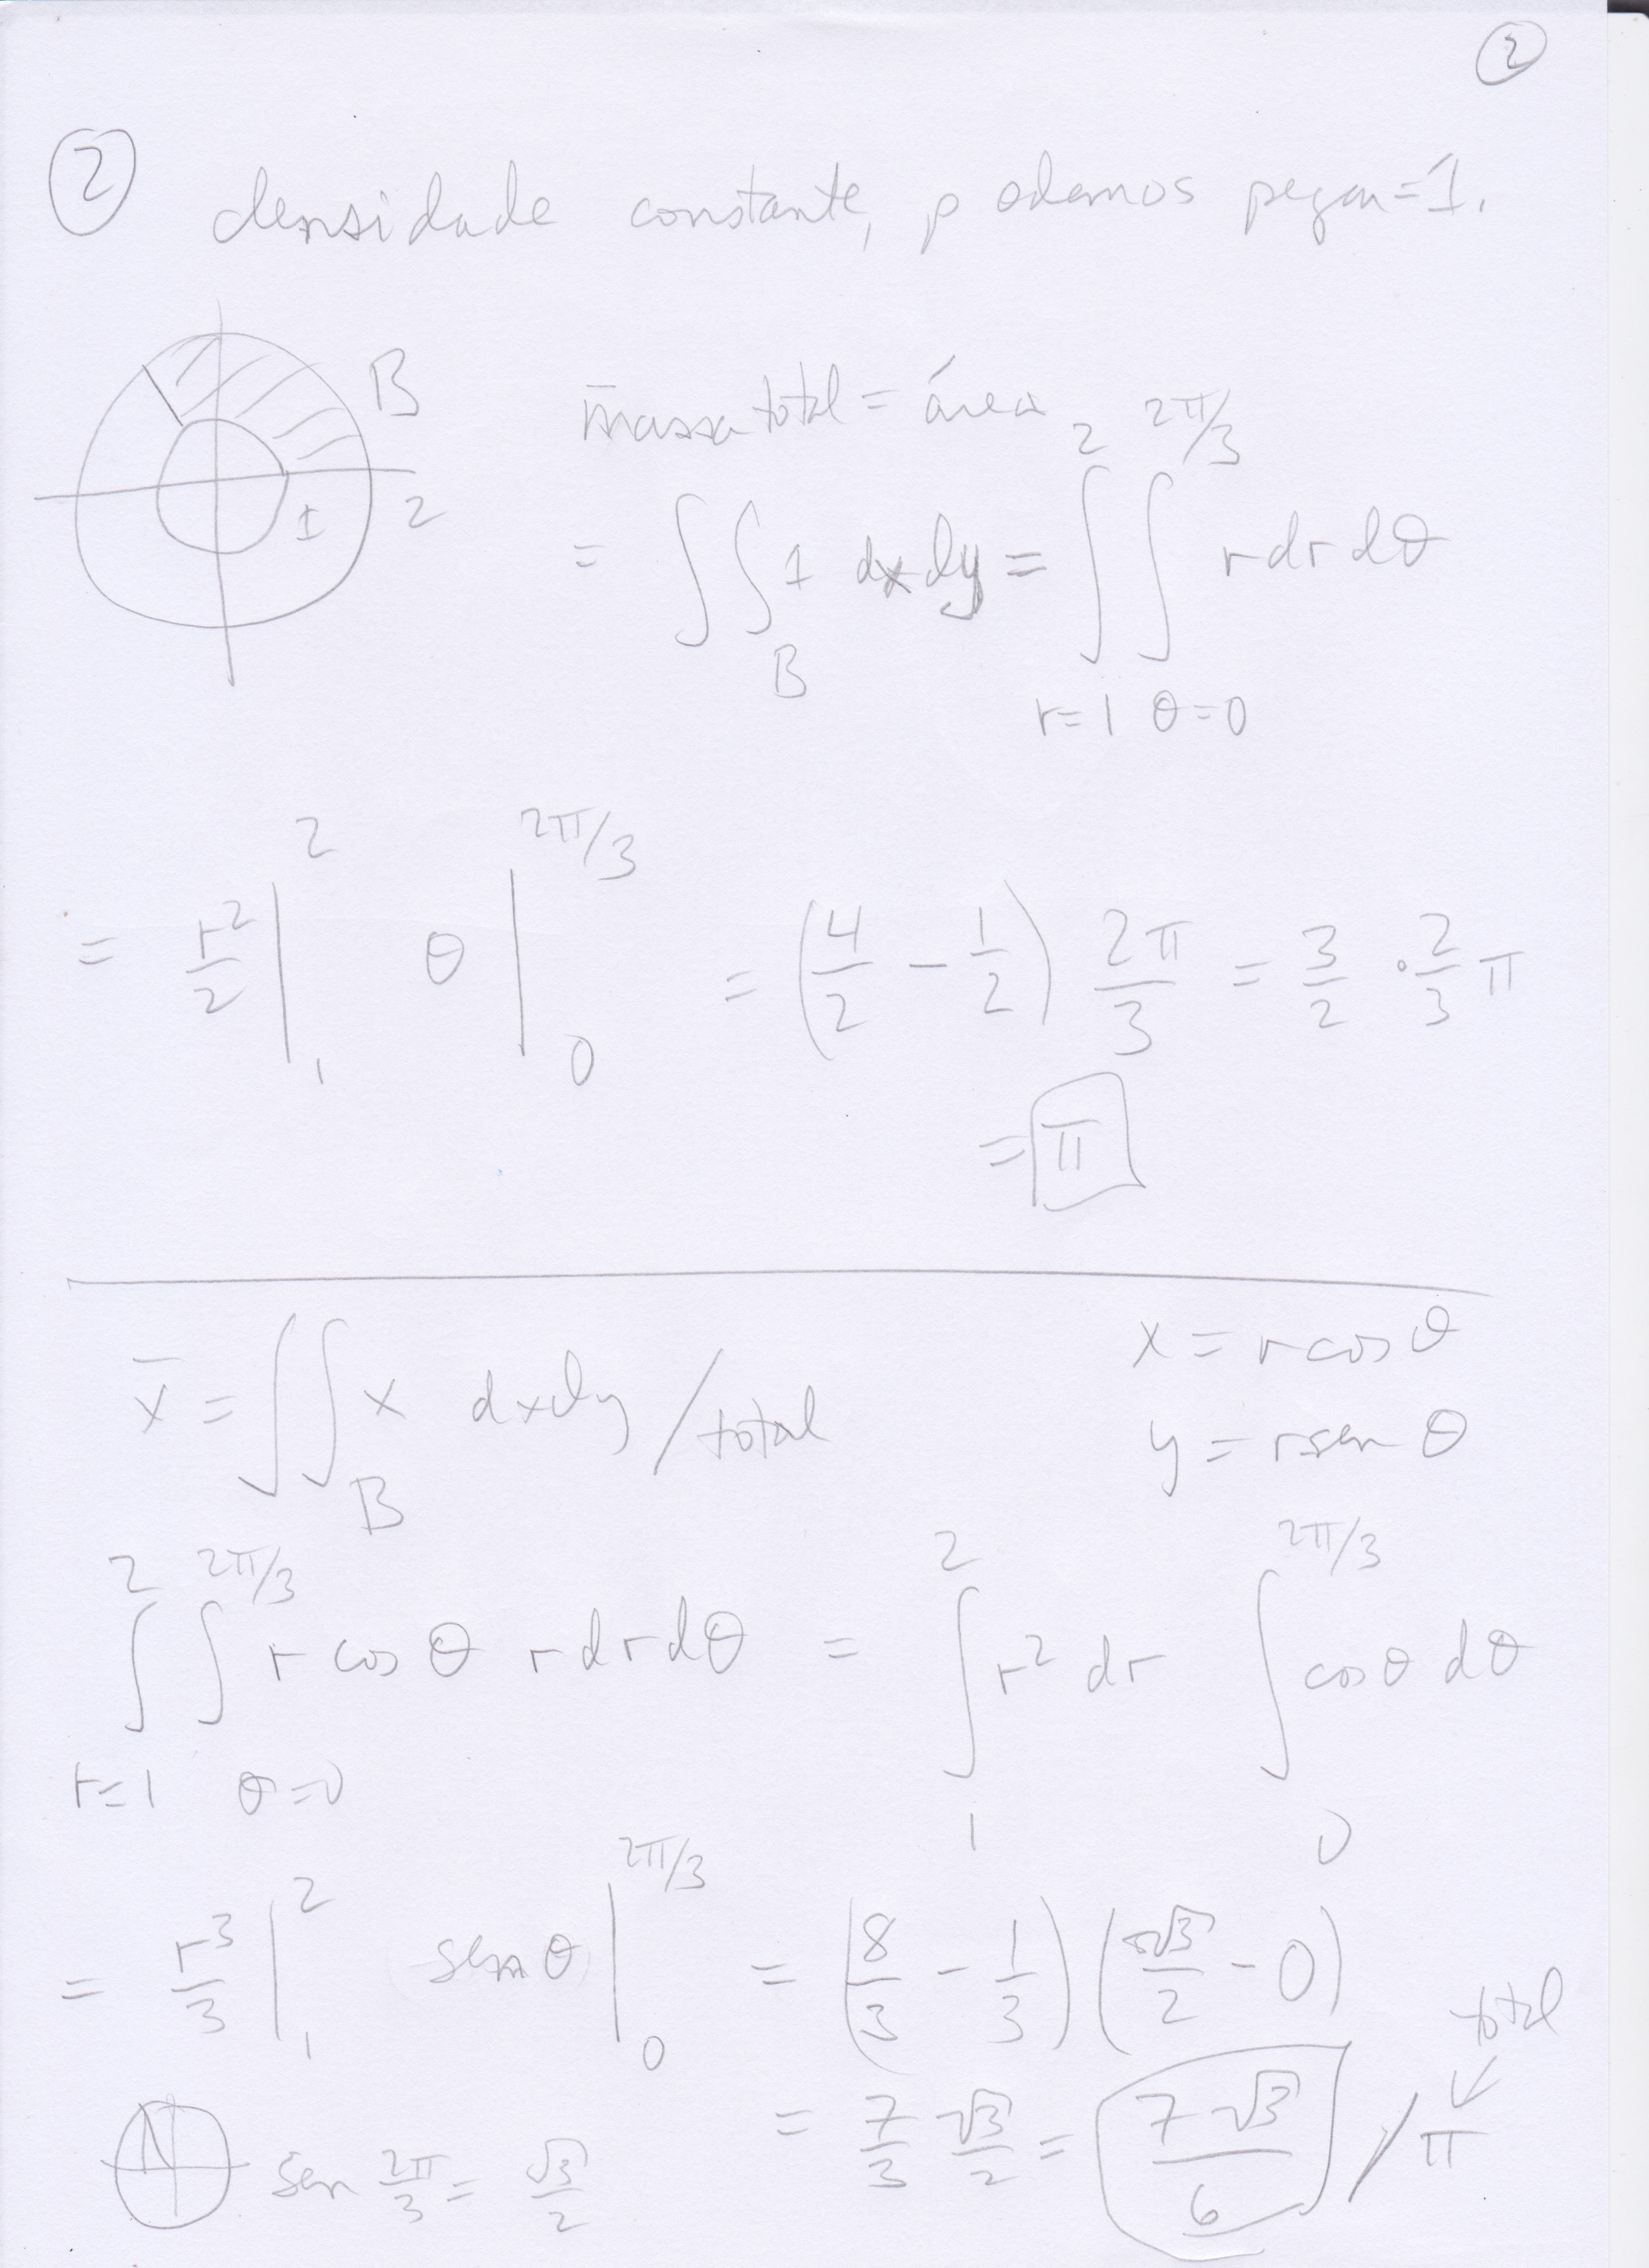 ②
② densidade constante, podemos pegar = 1.
B
1 2
massa total = área
= ∫∫_B 1 dx dy = ∫_{r=1}^{2} ∫_{θ=0}^{2π/3} r dr dθ
= r²/2 |_1^2 θ |_0^{2π/3} = (4/2 - 1/2) 2π/3 = 3/2 · 2/3 π
= π
x̄ = ∫∫_B x dx dy / total
x = r cos θ
y = r sen θ
∫_{r=1}^{2} ∫_{θ=0}^{2π/3} r cos θ r dr dθ = ∫_1^2 r² dr ∫_0^{2π/3} cos θ dθ
= r³/3 |_1^2 sen θ |_0^{2π/3} = (8/3 - 1/3) (√3/2 - 0)
total
= 7/3 √3/2 = 7√3/6 / π
sen 2π/3 = √3/2